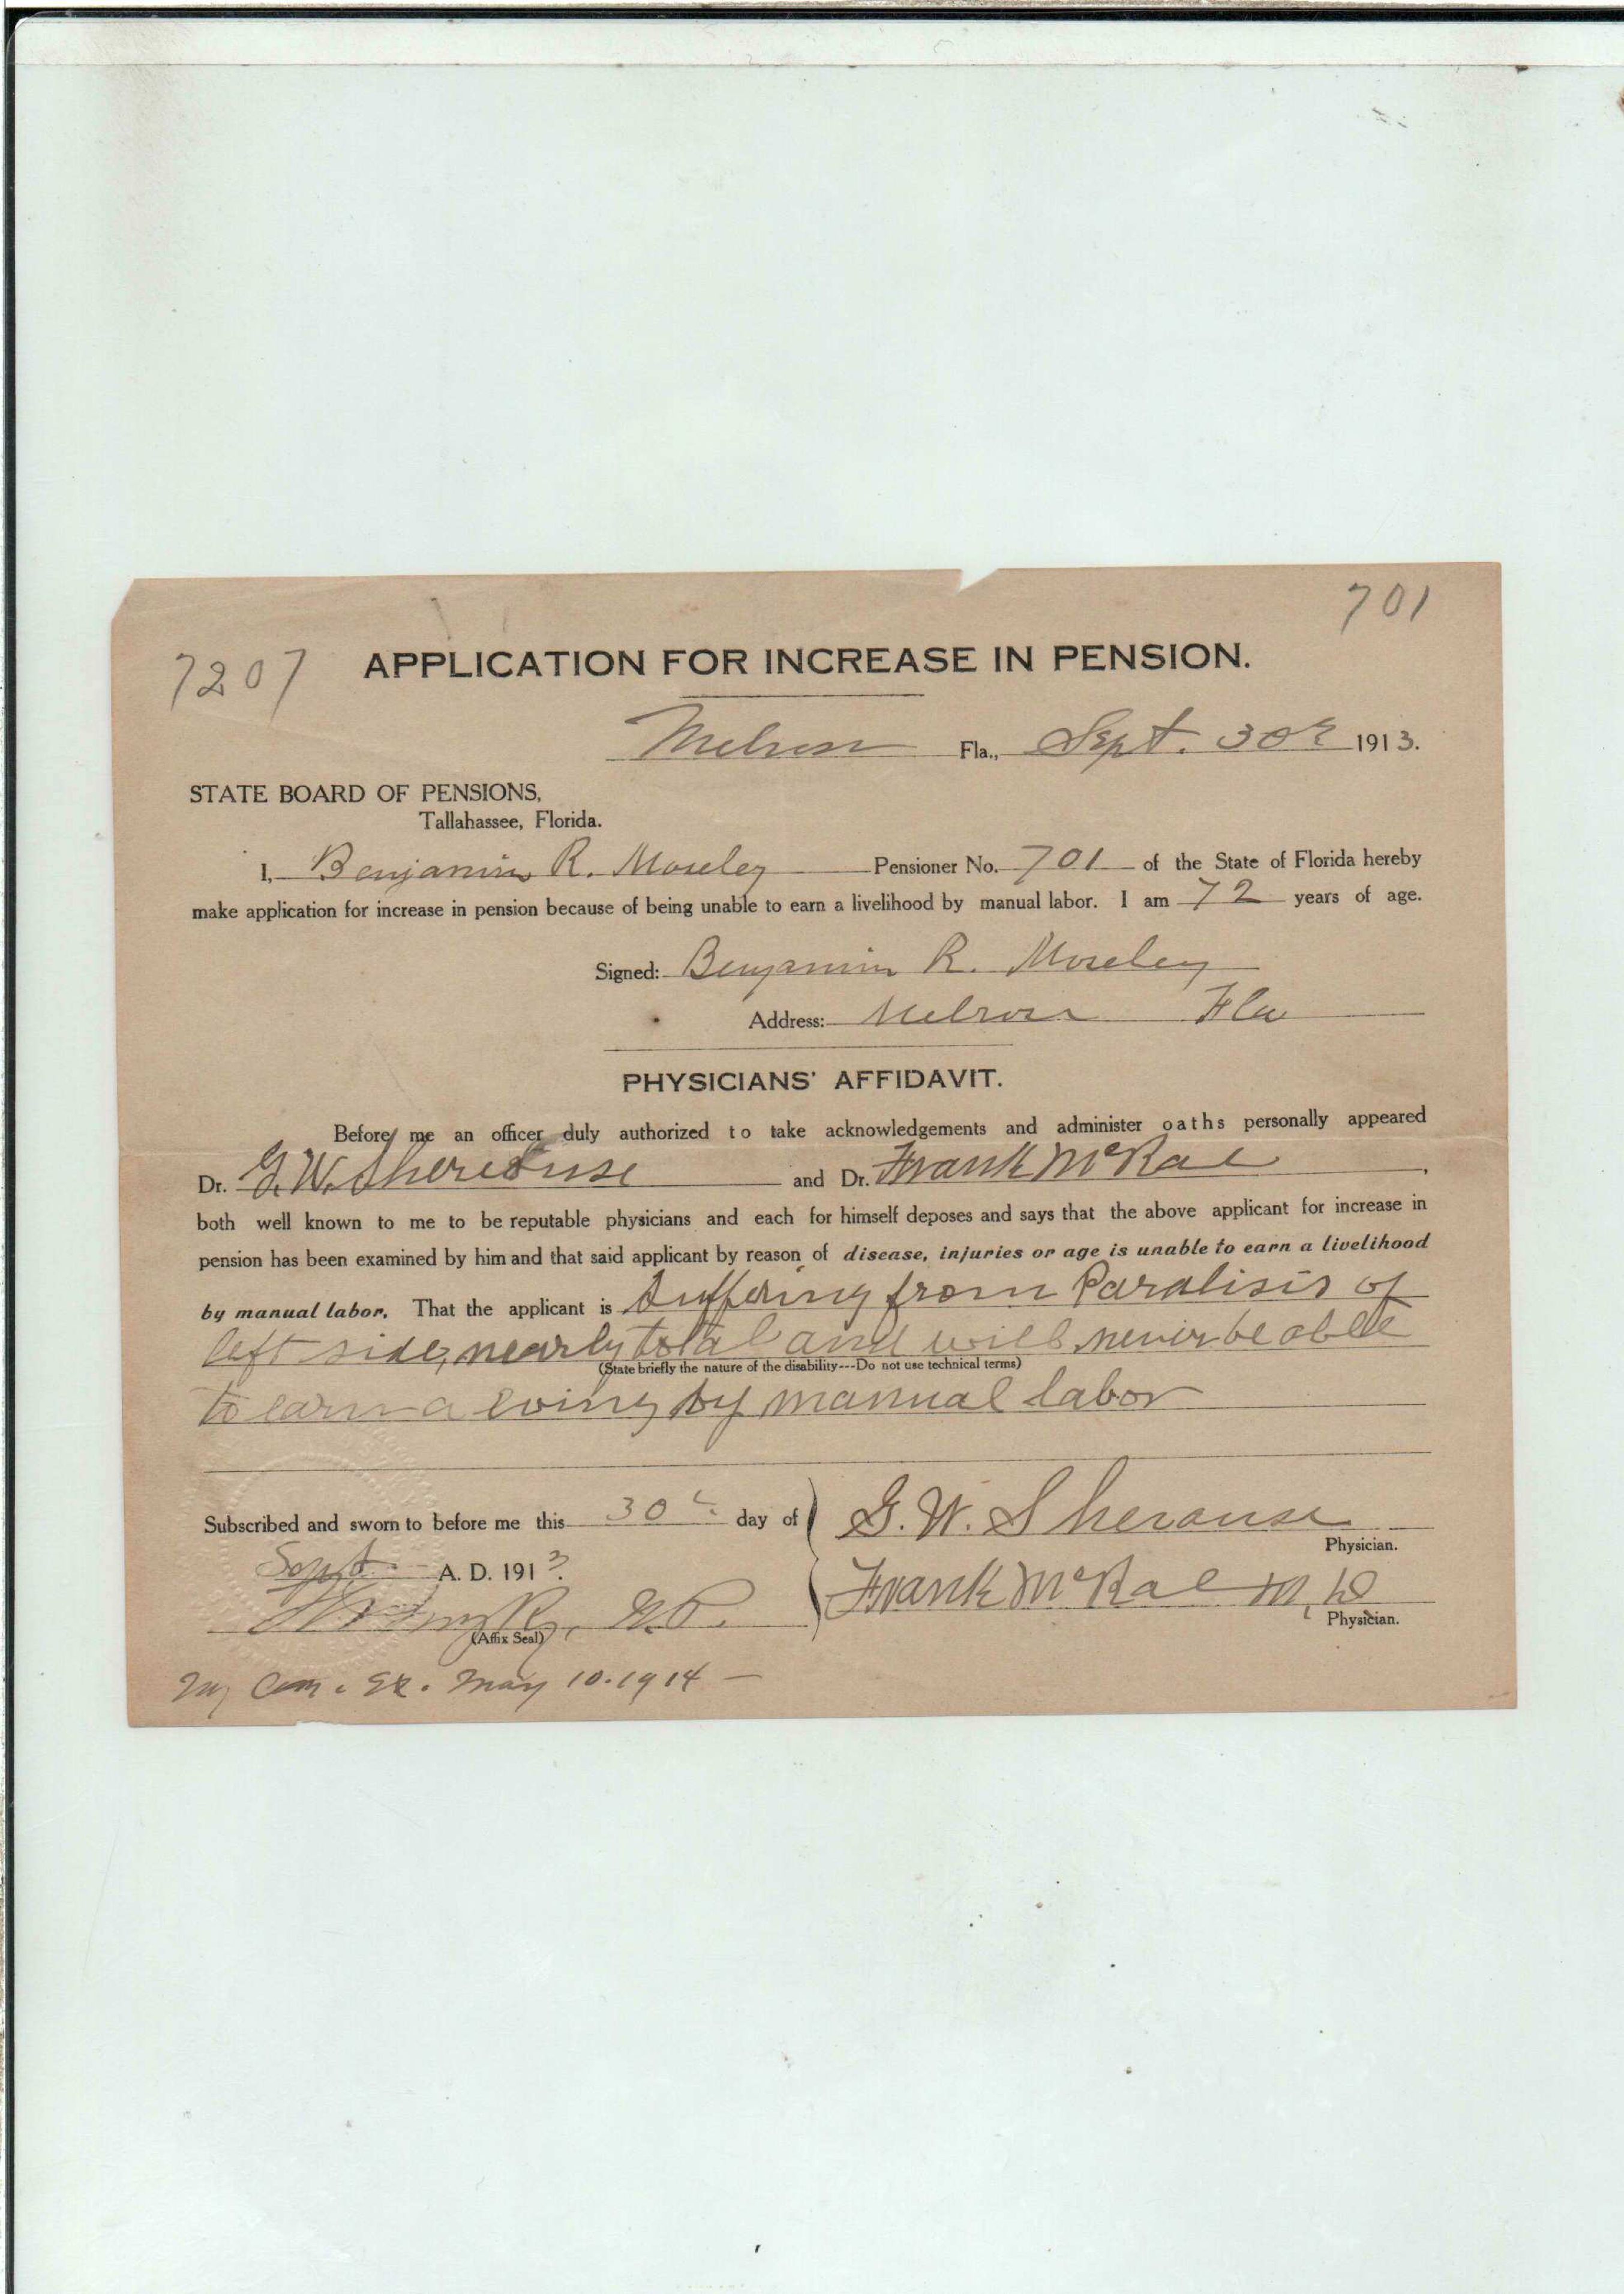 701
7207 APPLICATION FOR INCREASE IN PENSION.
Melrose Fla., Sept. 30th 1913.
STATE BOARD OF PENSIONS,
Tallahassee, Florida.
I, Benjamin R. Moseley Pensioner No. 701 of the State of Florida hereby
make application for increase in pension because of being unable to earn a livelihood by manual labor. I am 72 years of age.
Signed: Benjamin R. Moseley
Address: Melrose Fla
PHYSICIANS' AFFIDAVIT.
Before me an officer duly authorized to take acknowledgements and administer oaths personally appeared
Dr. G. W. Sherouse and Dr. Frank McRae,
both well known to me to be reputable physicians and each for himself deposes and says that the above applicant for increase in
pension has been examined by him and that said applicant by reason of disease, injuries or age is unable to earn a livelihood
by manual labor. That the applicant is Suffering from Paralisis of
left side, nearly total and will never be able
(State briefly the nature of the disability---Do not use technical terms)
to earn a living by manual labor
Subscribed and sworn to before me this 30th day of G. W. Sherouse
Physician.
Sept A. D. 1913.
N.P. Frank McRae M.D
(Affix Seal) Physician.
My Com. Ex. May 10. 1914 —